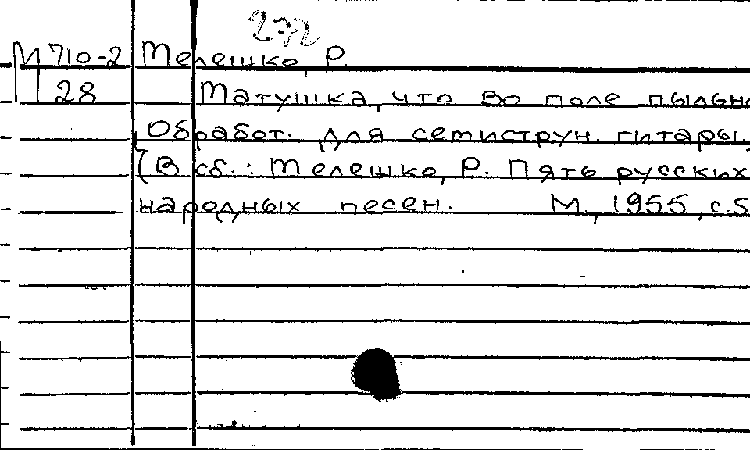 272
М 710-2 Мелешко, Р.
128 Матушка, что во поле пыльно
Обработ. для семиструн. гитары.
(В сб.: Мелешко, Р. Пять русских
народных песен. М., 1955, с.5